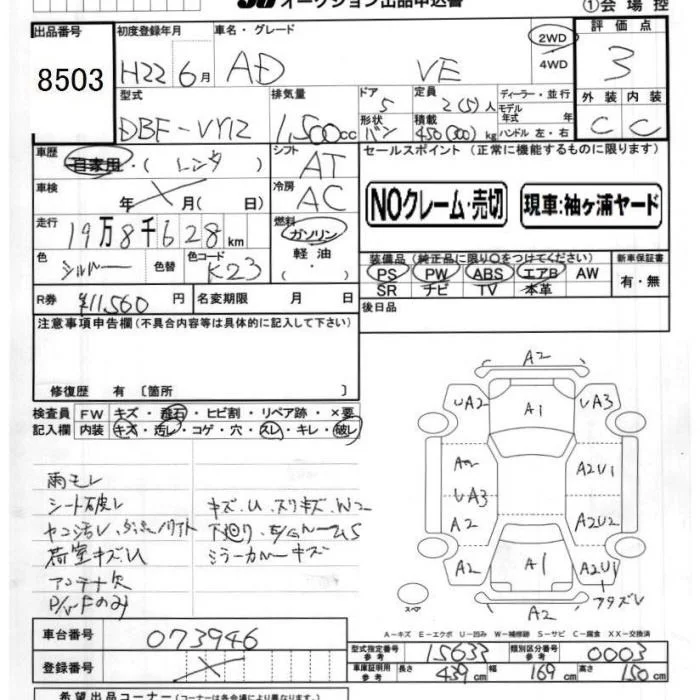 オークション出品申込書
①会場控
出品番号 初度登録年月 車名・グレード 評価点
8503 H22年6月 AD VE 2WD 4WD 3
型式 排気量 ドア 5 定員 2(5)人 ディーラー・並行 外装 内装
モデル年式 年
DBF-VY12 1,500cc 形状 バン 積載 450(300)kg ハンドル 左・右 C C
車歴 自家用・(レンタ) シフト AT セールスポイント (正常に機能するものに限ります)
車検 年 月(日) 冷房 AC NOクレーム・売切 現車:袖ヶ浦ヤード
走行 19万8千628km 燃料 ガソリン
色 シルバー 色替 色コード K23 軽油 (・) 装備品 (純正品に限り○をつけてください) 新車保証書
PS PW ABS エアB AW 有・無
SR ナビ TV 本革
R券 ¥11,560円 名変期限 月 日 後日品
注意事項申告欄(不具合内容等は具体的に記入して下さい)
修復歴 有 〔箇所 〕
検査員 FW キズ・飛石・ヒビ割・リペア跡・×要
記入欄 内装 キズ・汚レ・コゲ・穴・スレ・キレ・破レ
雨モレ
シート破レ キズ、U、スリキズ、W2
荷室キズU ミラーカバーキズ
アンテナ欠
P/WFのみ
A2
UA2 A1 UA3
A2 A2U1
UA3
A2 A2U2
A2 A1 A2U1
スペア A2
A-キズ E-エクボ U-凹み W-補修跡 S-サビ C-腐食 XX-交換済
車台番号 073946 型式指定番号 参考 15633 類別区分番号 参考 0003
登録番号 車庫証明用 参考 長さ 439cm 幅 169cm 高さ 150cm
希望出品コーナー (コーナーは各会場により異なります。)